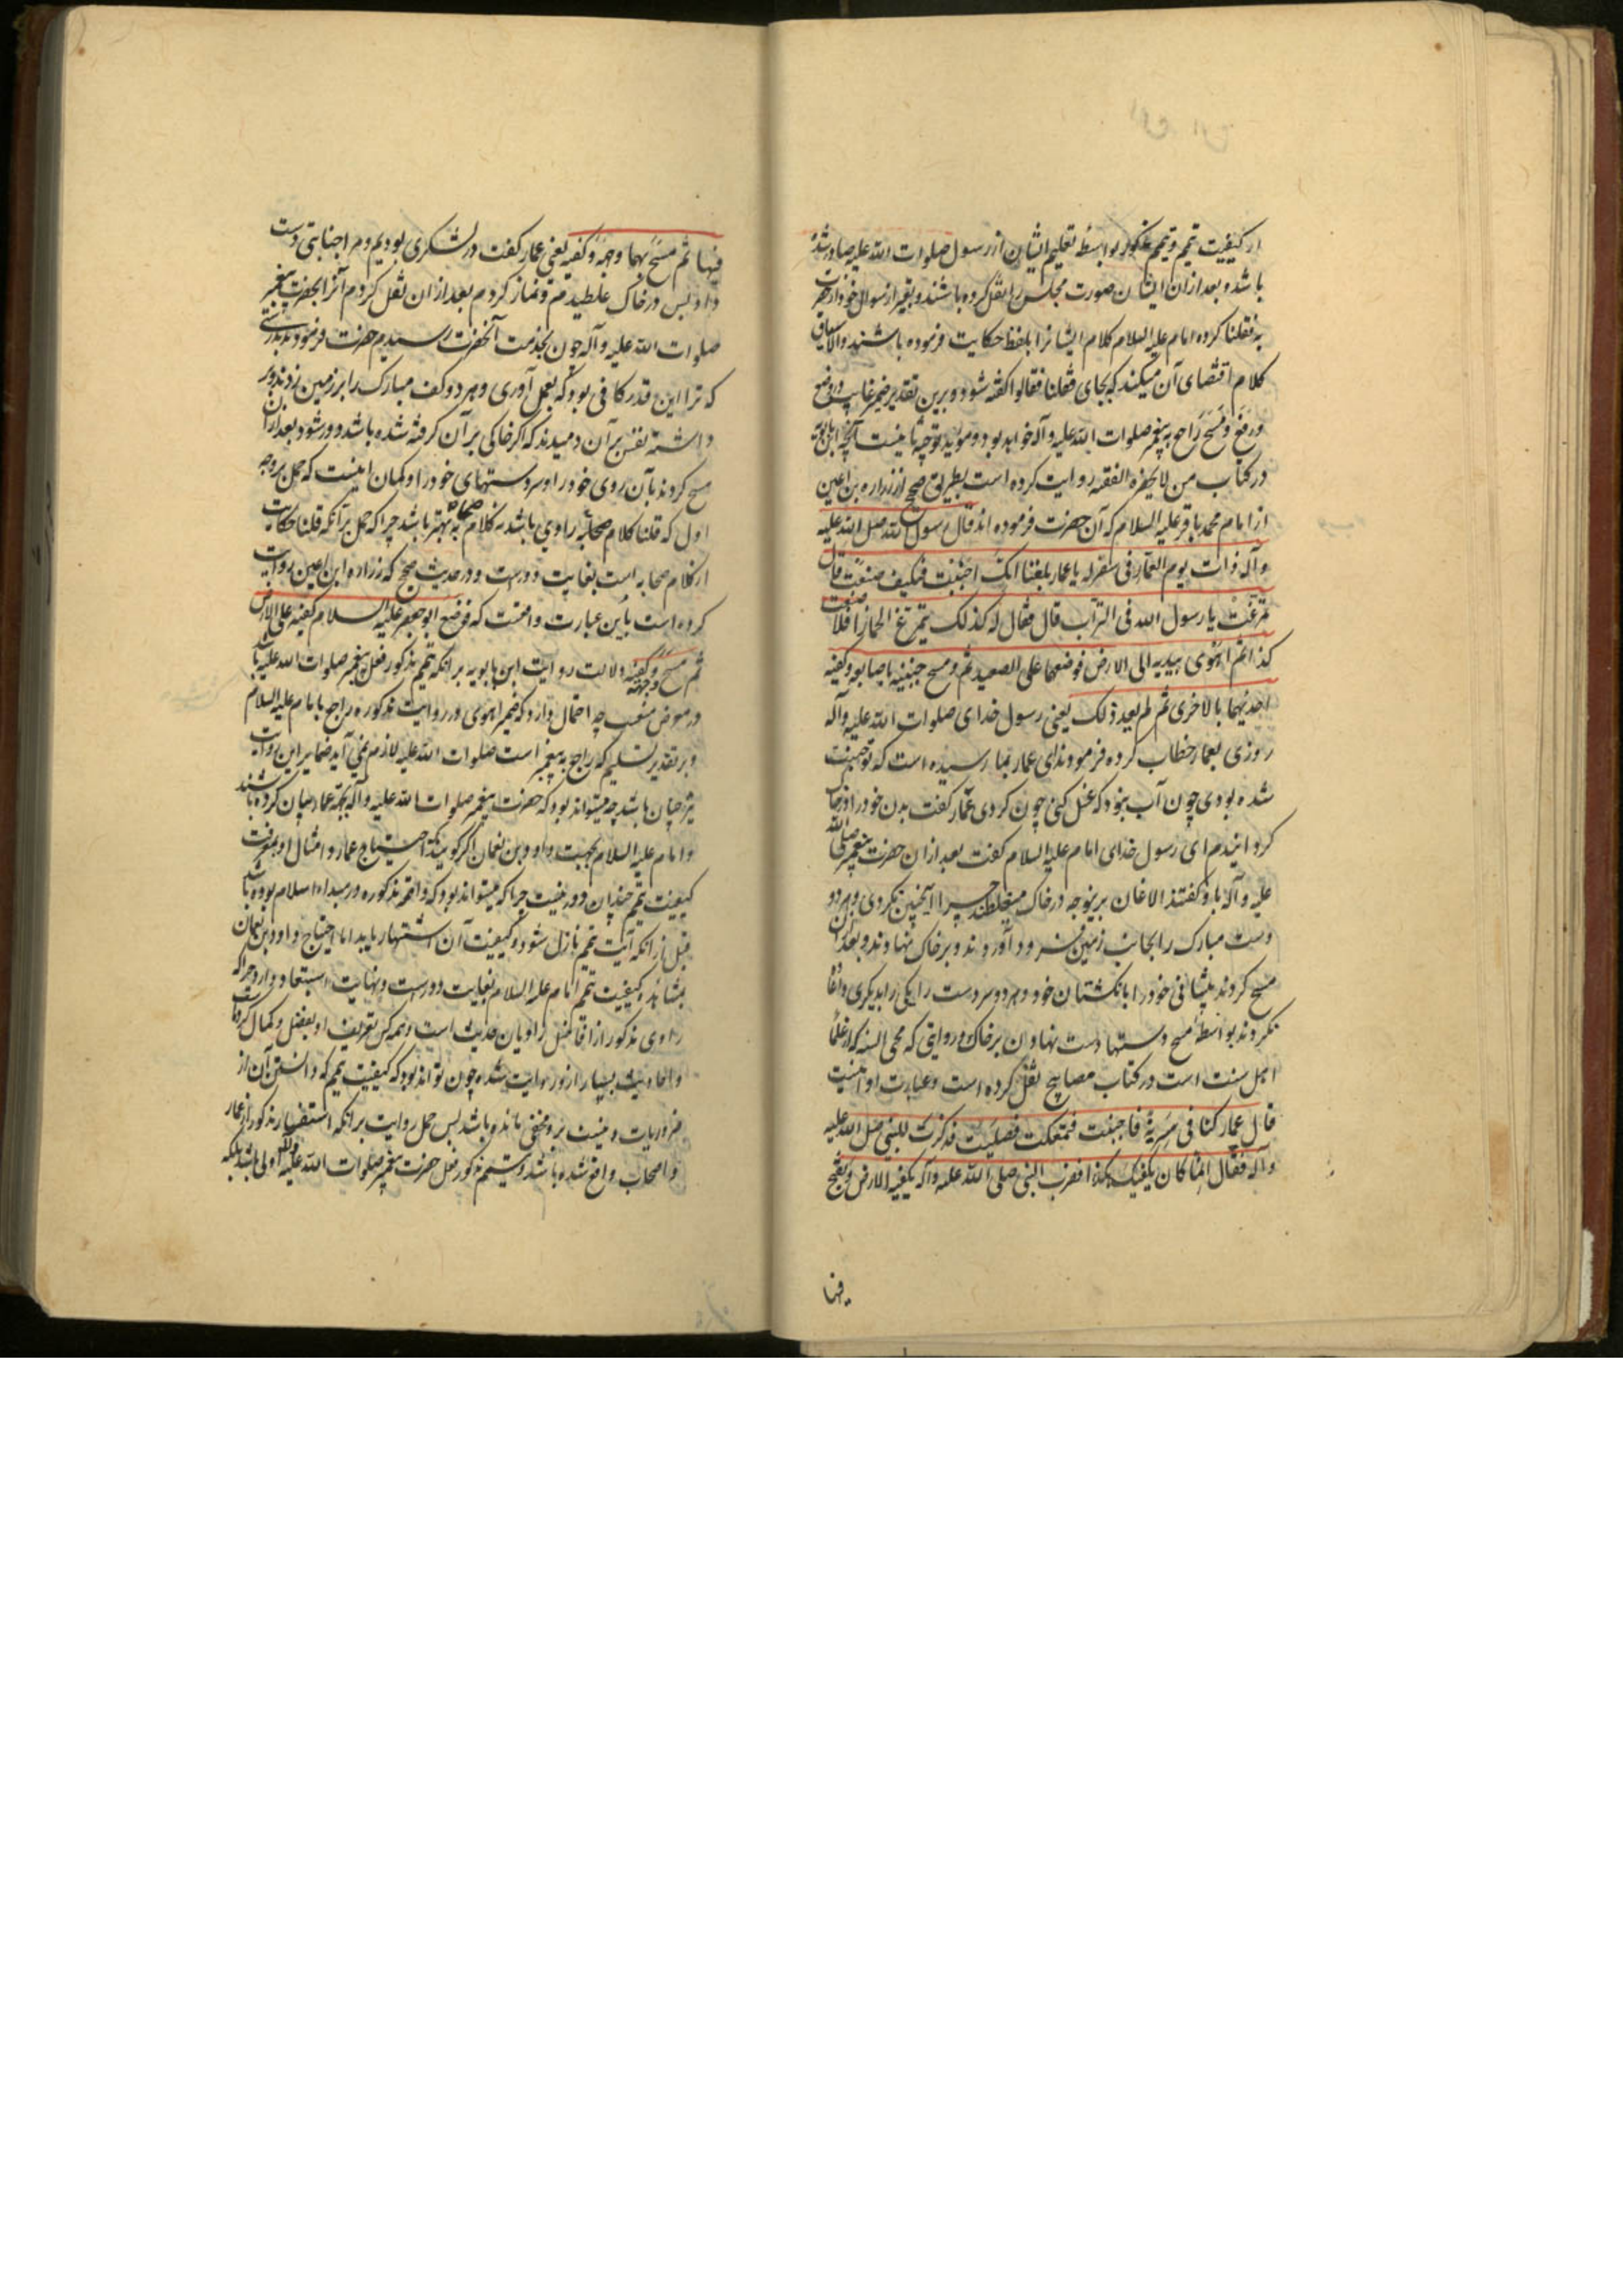 از کیفیت تیمم و تیمم مذکور بواسطه تعلیم ایشان از رسول صلوات الله علیه صادر شده
باشد و بعد از آن ایشان صورت مجلس را نقل کرده باشند و تعبیر از سوال خود از حضرت
به فقلنا کرده امام علیه السلام کلام ایشانرا بلفظ حکایت فرموده باشند والا سیاق
کلام اقتضای آن میکند که بجای فقلنا فقالوا گفته شود و برین تقدیر ضمیر غایب در وضع
و رفع و مسح راجع به پیغمبر صلوات الله علیه و آله خواهد بود و موید توجیه ثانیست آنچه ابن بابویه
در کتاب من لا یحضره الفقیه روایت کرده است بطریق صحیح از زراره بن اعین
از امام محمد باقر علیه السلام که آن حضرت فرموده اند قال رسول الله صلی الله علیه
و آله ذات یوم لعمار فی سفر له یا عمار بلغنا انک اجنبت فکیف صنعت قال
تمرغت یا رسول الله فی التراب قال فقال له کذلک یتمرغ الحمار افلا صنعت
کذا ثم اهوی بیدیه الی الارض فوضعهما علی الصعید ثم مسح جبینیه باصابعه و کفیه
احدیهما بالاخری ثم لم یعد ذلک یعنی رسول خدای صلوات الله علیه و آله
روزی بعمار خطاب کرده فرمودند ای عمار بما رسیده است که تو جنب
شده بودی چون آب نبود که غسل کنی چون کردی عمار گفت بدن خود را در خاک
گردانیدم ای رسول خدای امام علیه السلام گفت بعد از آن حضرت پیغمبر صلی الله
علیه و آله باو گفتند الاغان برینوجه در خاک میغلطند چرا اینچنین نکردی و هر دو
دست مبارک را بجانب زمین فرود آوردند و بر خاک نهادند و بعد از آن
مسح کردند پیشانی خود را بانگشتان خود و هر دو سر دست را یکی را بدیگری و اعاده
نکردند بواسطه مسح دستها دست نهادن بر خاک و روایتی که محی السنه که از علمای
اهل سنت است در کتاب مصابیح نقل کرده است و عبارت او اینست
قال عمار کنا فی سریة فاجنبت فتمعکت فصلیت فذکرت للنبی صلی الله علیه
و آله فقال انما کان یکفیک هکذا فضرب النبی صلی الله علیه و آله بکفیه الارض و نفخ
فیها
فیها ثم مسح بهما وجهه و کفیه یعنی عمار گفت در لشکری بودیم و مرا جنابتی دست
داد پس در خاک غلطیدم و نماز کردم بعد از آن نقل کردم آنرا بحضرت پیغمبر
صلوات الله علیه و آله چون بخدمت آنحضرت رسیدیم حضرت فرمودند بدرستی
که ترا این قدر کافی بود که بعمل آوری و هر دو کف مبارک را بر زمین زدند و بر
داشته نفس بر آن دمیدند که اگر خاکی بر آن گرفته شده باشد دور شود بعد از آن
مسح کردند بآن روی خود را و سر دستهای خود را و گمان اینست که حمل بر وجه
اول که قلنا کلام صحابه راوی باشد نه کلام صحابه بهتر باشد چرا که حمل بر آنکه قلنا حکایت
از کلام صحابه است بغایت دور است و در حدیث صحیح که زراره ابن اعین روایت
کرده است باین عبارت واقعست که فوضع ابو جعفر علیه السلام کفیه علی الارض
ثم مسح وجهه و کفیه و دلالت روایت ابن بابویه بر آنکه تیمم مذکور فعل پیغمبر صلوات الله علیه باشد
در معرض منعست چه احتمال دارد که ضمیر اهوی در روایت مذکوره راجع بامام علیه السلام
و بر تقدیر تسلیم که راجع به پیغمبر است صلوات الله علیه لازم نمی آید ضمایر این روایت
نیز چنان باشد چه میتواند بود که حضرت پیغمبر صلوات الله علیه و آله بجهة عمار بیان کرده باشند
و امام علیه السلام بجهت داود بن نعمان اگر گویند که احتیاج عمار و امثال او بمعرفت
کیفیت تیمم چندان دور نیست چرا که میتواند بود که واقعه مذکوره در مبداء اسلام بوده باشد
قبل از آنکه آیت تیمم نازل شود و کیفیت آن اشتهار یابد اما احتیاج داود بن نعمان
بمشاهده کیفیت تیمم امام علیه السلام بغایت دور است و نهایت استبعاد دارد چرا که
راوی مذکور از افاضل راویان حدیث است و همه کس تعریف او بفضل و کمال کرده اند
و احادیث بسیار از او روایت شده چون تواند بود که کیفیت تیمم که دانستن آن از
ضروریات دینست برو مخفی مانده باشد پس حمل روایت بر آنکه استفسار مذکور از عمار
و اصحاب واقع شده باشد و تیمم مذکور فعل حضرت پیغمبر صلوات الله علیه و آله اولی باشد بلکه